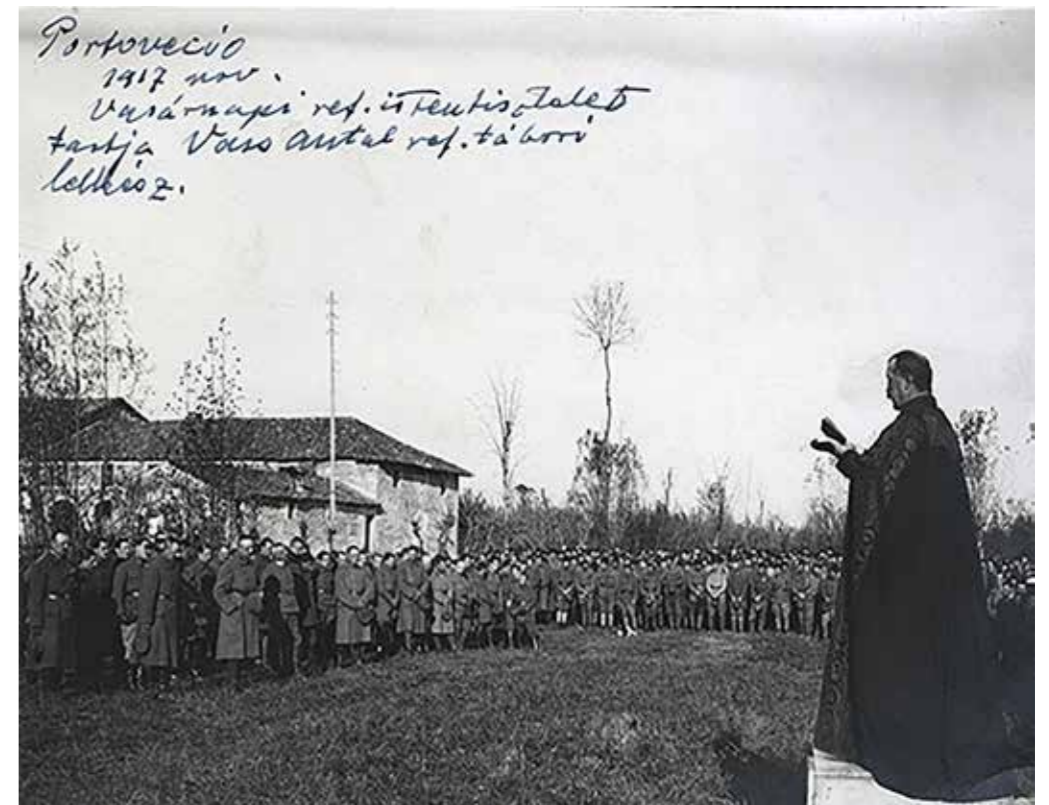 Portovecio
1917 nov.
Vasárnapi ref. istentisztelet
tartja Vass Antal ref. tábori
lelkész.